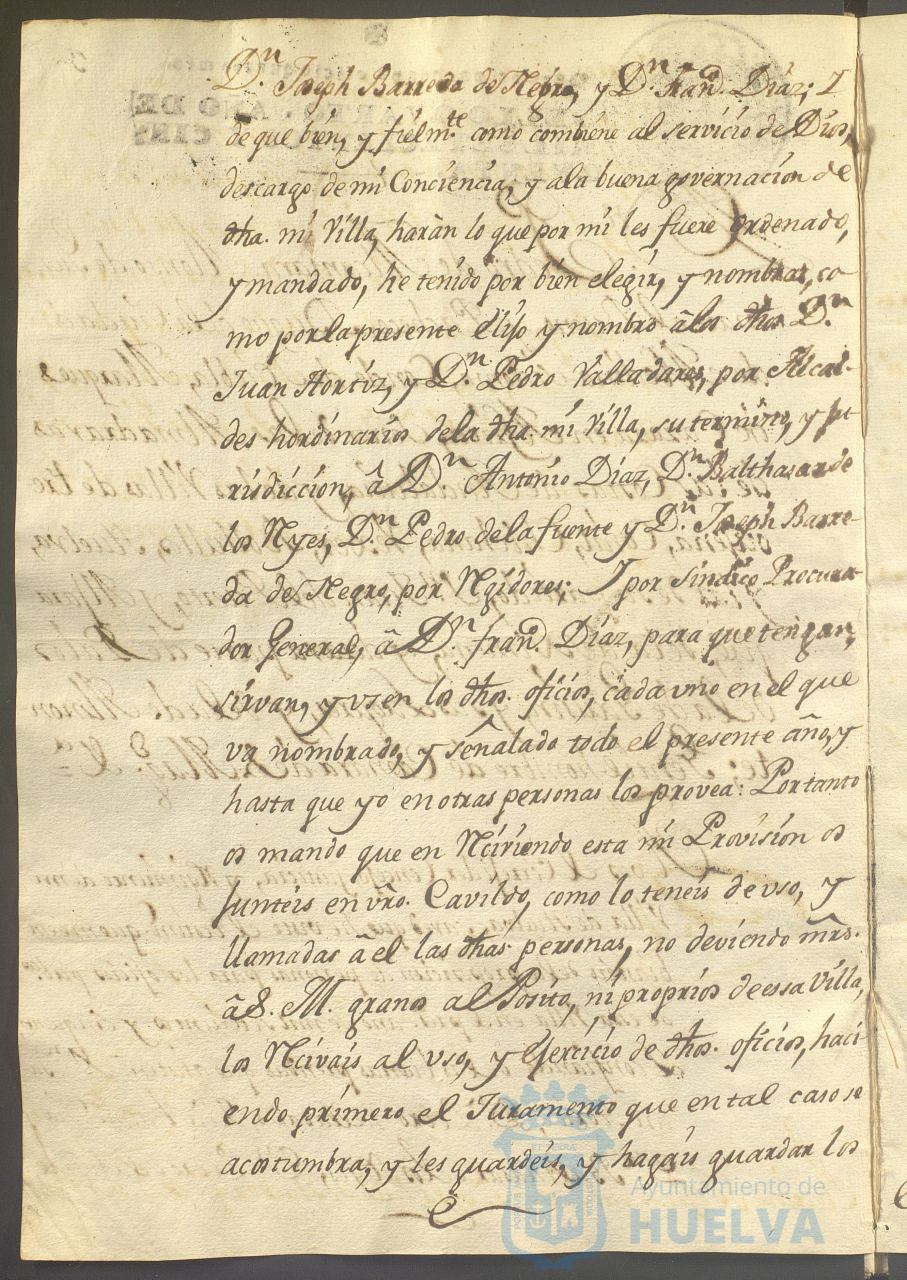 Dn. Joseph Barreda de Negro, y Dn. Frand. Díaz; I
de que bien, y fielmte. como combiene al servicio de Dios,
descargo de mi Conciencia, y ala buena governacion de
dha. mi Villa, haràn lo que por mi les fuere ordenado,
y mandado, he tenido por bien elegir, y nombrar, co
mo por la presente elijo y nombro â los dhos Dn.
Juan Hortiz, y Dn. Pedro Valladares, por Alcal-
des hordinarios de la dha. mi Villa, su termino, y ju
risdiccion, â Dn. Antonio Diaz, Dn. Balthasar de
los Nyes, Dn. Pedro de la fuente y Dn. Joseph Barre-
da de Negro, por Ngidores; I por Sindico Procura
dor General, â Dn. frand. Diaz, para que tengan,
sirvan, y vsen los dhos. oficios, cada vno en el que
va nombrado, y señalado todo el presente año, y
hasta que yo en otras personas los provea: Portanto
os mando que en Nciviendo esta mi Provision os
junteis en vro. Cavildo, como lo teneis de vso, y
llamadas â el las dhas personas, no deviendo mrs.
â S. M. granos al Posito, ni proprios de essa Villa,
los Ncivais al vso, y ejercicio de dhos. oficios, haci
endo primero el Juramento que en tal caso se
acostumbra, y les guardeis, y hagais guardar los
Ayuntamiento de
HUELVA